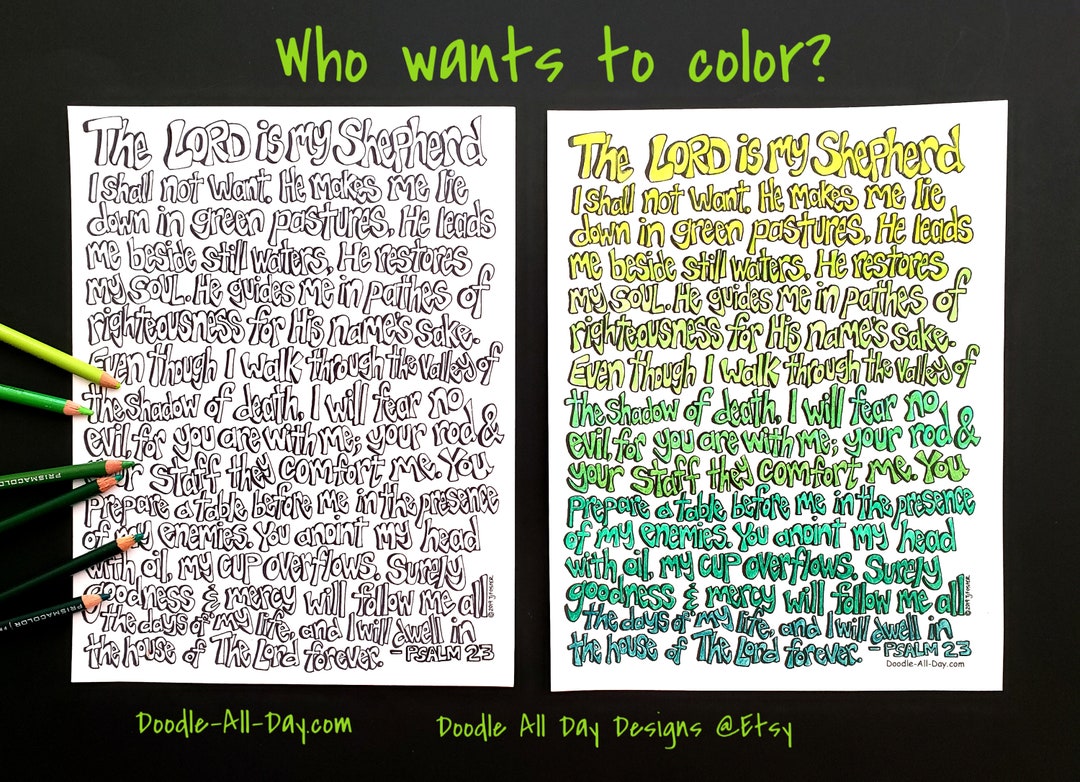 Who wants to color?
The LORD is my Shepherd
I shall not want. He makes me lie
down in green pastures. He leads
me beside still waters, He restores
my soul. He guides me in pathes of
righteousness for His name's sake.
Even though I walk through the valley of
the shadow of death, I will fear no
evil, for you are with me; your rod &
your staff they comfort me. You
prepare a table before me in the presence
of my enemies. You anoint my head
with oil, my cup overflows. Surely
goodness & mercy will follow me all
the days of my life, and I will dwell in
the house of The Lord forever. - PSALM 23
The LORD is my Shepherd
I shall not want. He makes me lie
down in green pastures. He leads
me beside still waters, He restores
my soul. He guides me in pathes of
righteousness for His name's sake.
Even though I walk through the valley of
the shadow of death, I will fear no
evil, for you are with me; your rod &
your staff they comfort me. You
prepare a table before me in the presence
of my enemies. You anoint my head
with oil, my cup overflows. Surely
goodness & mercy will follow me all
the days of my life, and I will dwell in
the house of The Lord forever. - PSALM 23
Doodle-All-Day.com
PRISMACOLOR
PRISMACOLOR
Doodle-All-Day.com
Doodle All Day Designs @Etsy